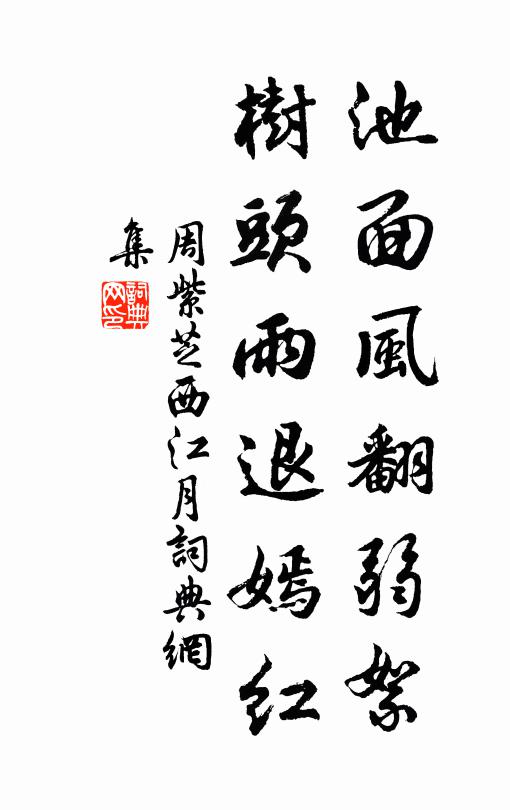 池面風翻弱絮
樹頭雨退嫣紅
周紫芝西江月詞典網
集
詞典网印